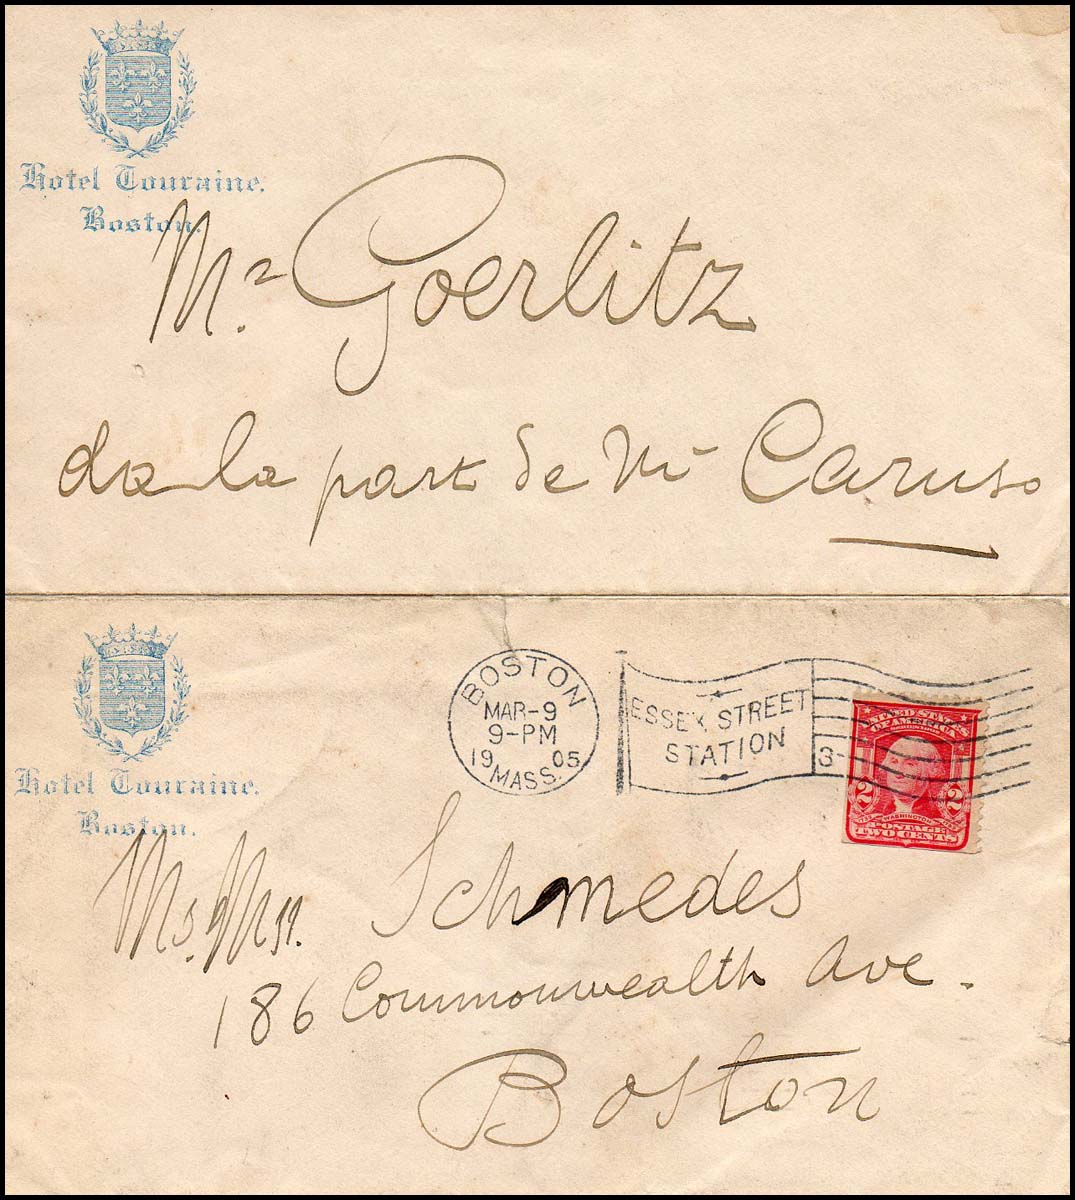 Hotel Touraine.
Boston.
Mr. Goerlitz
da la part de Mr Caruso
Hotel Touraine.
Boston.
BOSTON
MAR-9
9-PM
19 05
MASS.
ESSEX STREET
STATION
3-
UNITED STATES
OF AMERICA
2 2
WASHINGTON
POSTAGE
TWO CENTS
Schmedes
186 Commonwealth Ave.
Boston